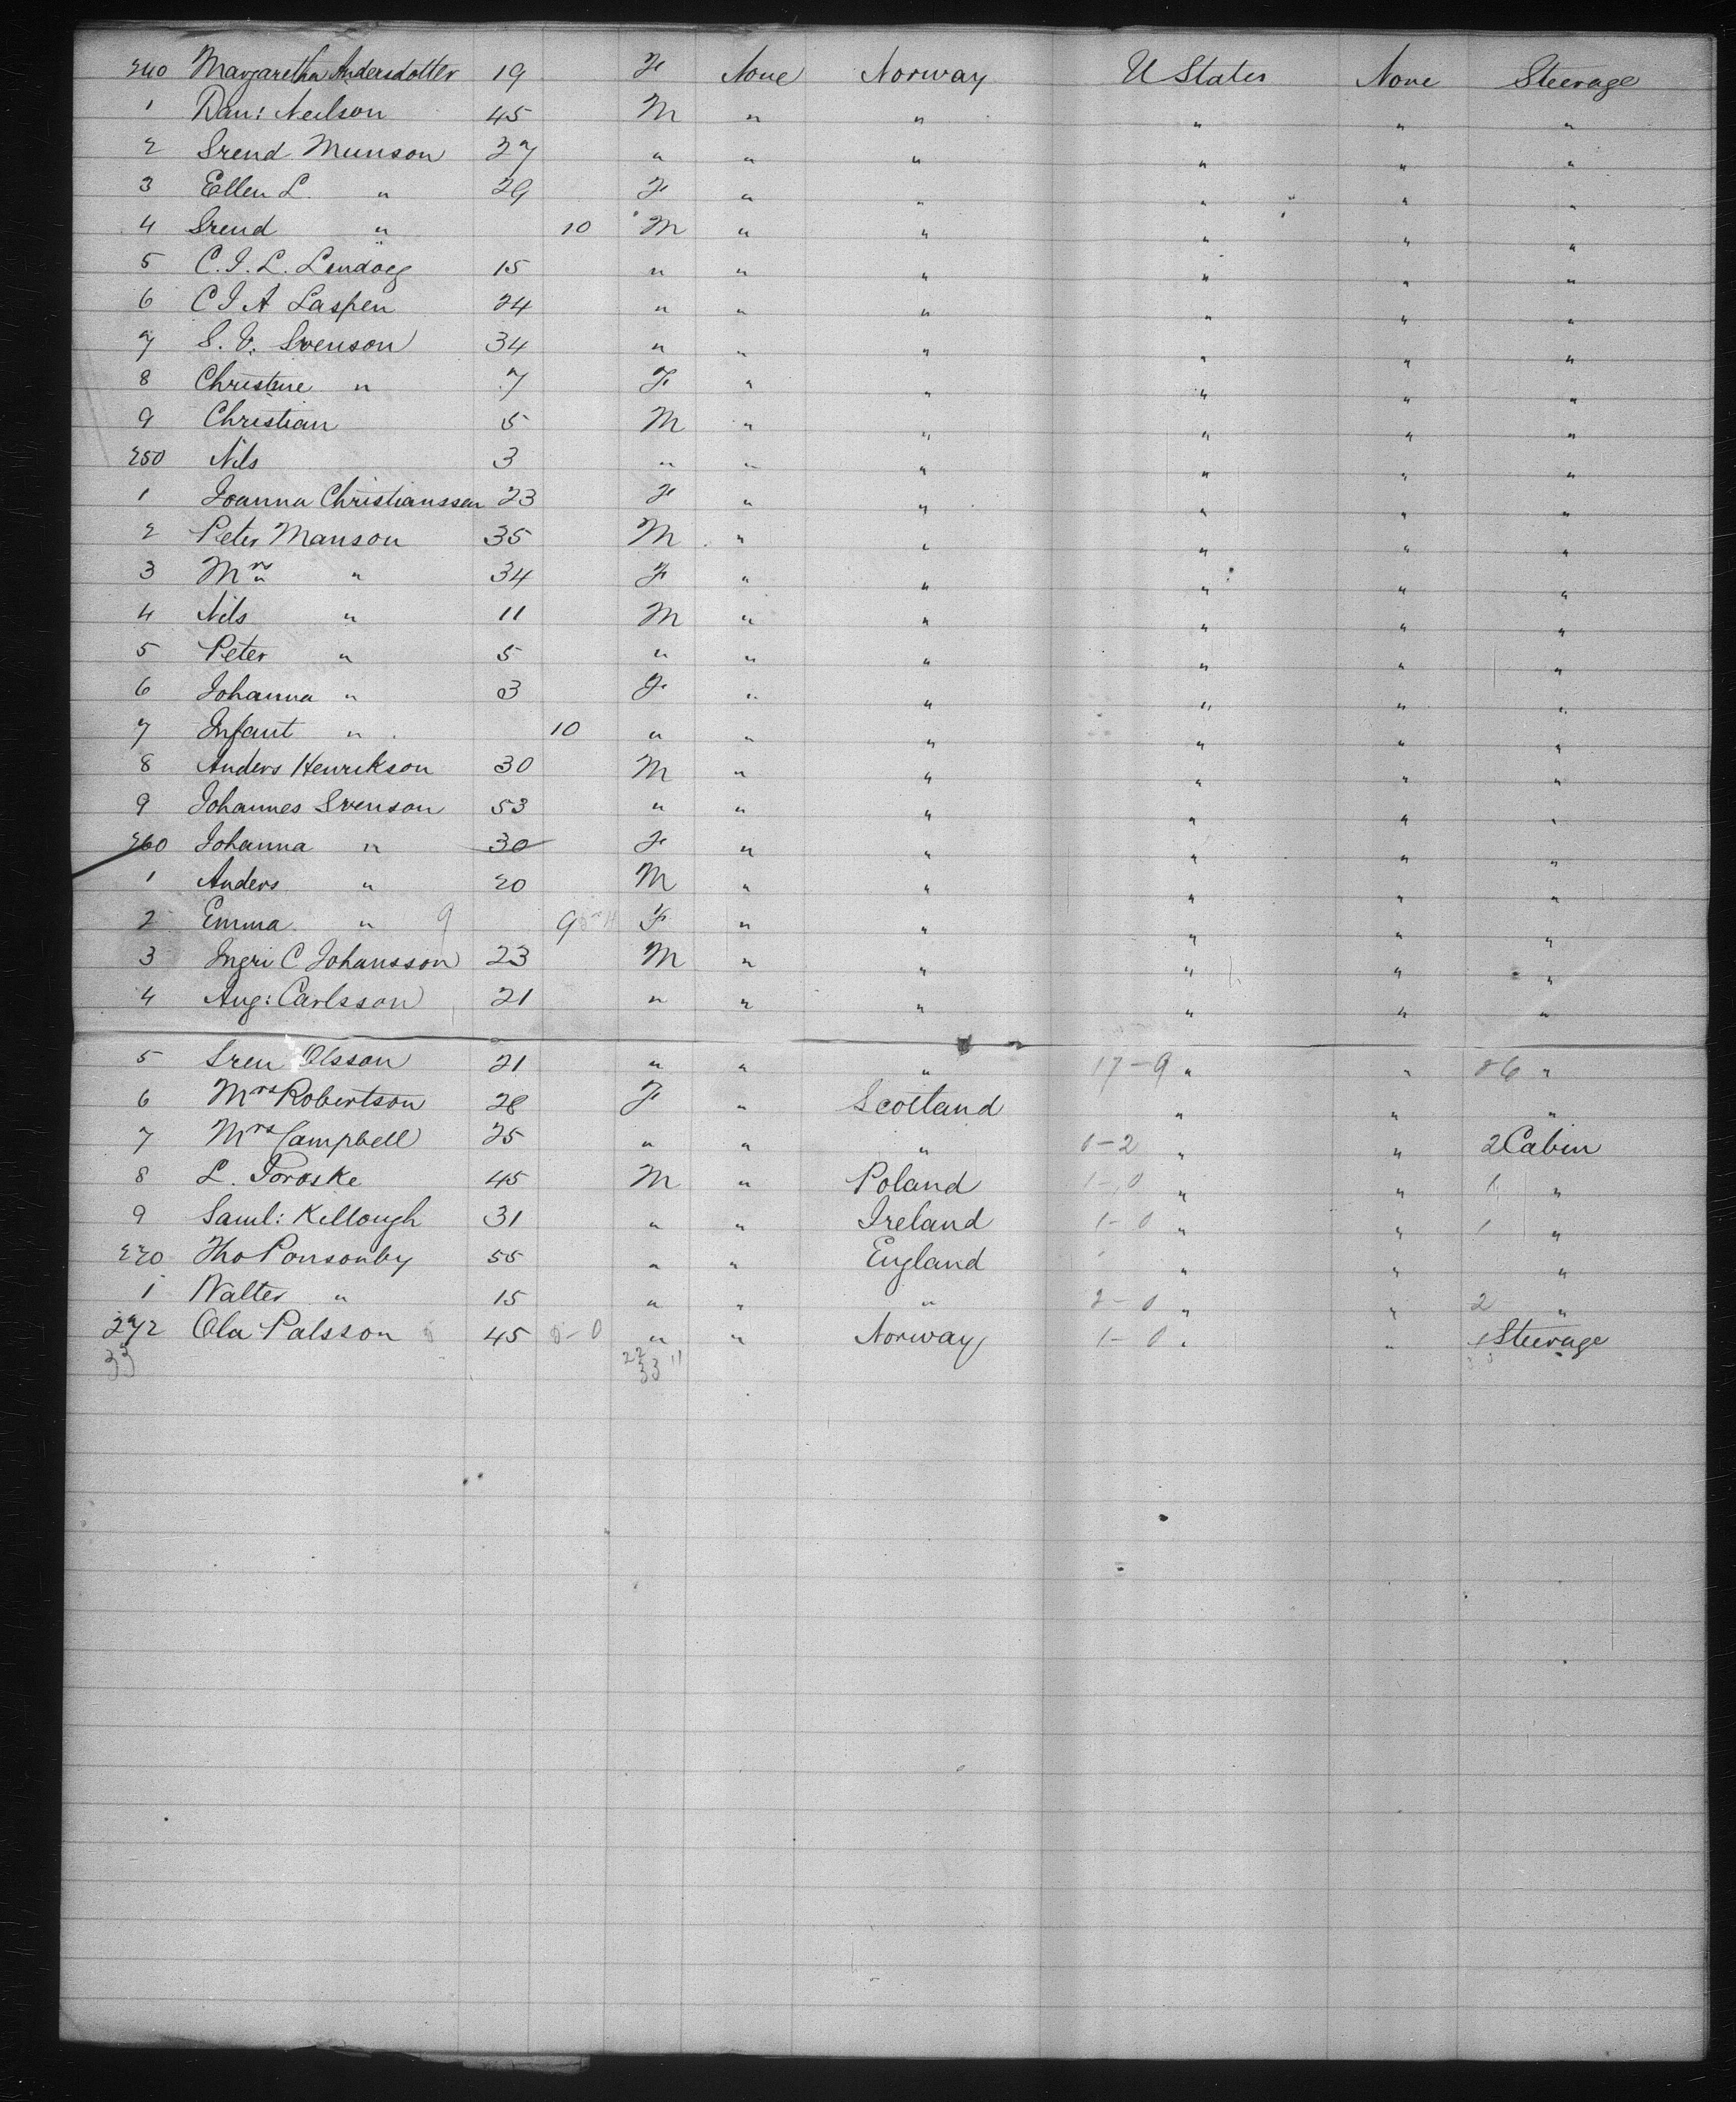 240 Margaretha Andersdotter 19 F None Norway U States None Steerage
1 Dan: Neilson 45 M " " " " "
2 Srend Munson 27 " " " " " "
3 Ellen L. " 29 F " " " " "
4 Srend " 10 M " " " " "
5 C. J. L. 15 " " " " " "
6 C J A Laspen 24 " " " " " "
7 S. V. Svenson 34 " " " " " "
8 Christine " 7 F " " " " "
9 Christian 5 M " " " " "
250 Nils 3 " " " " " "
1 Joanna Christianssen 23 F " " " " "
2 Peter Manson 35 M " " " " "
3 Mrs " 34 F " " " " "
4 Nils " 11 M " " " " "
5 Peter " 5 " " " " " "
6 Johanna " 3 F " " " " "
7 Infant " 10 " " " " " "
8 Anders Henrikson 30 M " " " " "
9 Johannes Svenson 53 " " " " " "
260 Johanna " 30 F " " " " "
1 Anders " 20 M " " " " "
2 Emma " 9 9 F " " " " "
3 Ingri C Johansson 23 M " " " " "
4 Aug: Carlsson 21 " " " " " "
5 Sren Olsson 21 " " " 17-9 " " 86 "
6 Mrs Robertson 28 F " Scotland " " "
7 Mrs Campbell 25 " " " 0-2 " " 2 Cabin
8 L. Poroske 45 M " Poland 1-0 " " 1 "
9 Saml: Killough 31 " " Ireland 1-0 " " 1 "
270 Tho Ponsonby 55 " " England " " "
1 Walter " 15 " " " 2-0 " " 2 "
272 Ola Palsson 45 0-0 " " Norway 1-0 " " 1 Steerage
33 22 11
33